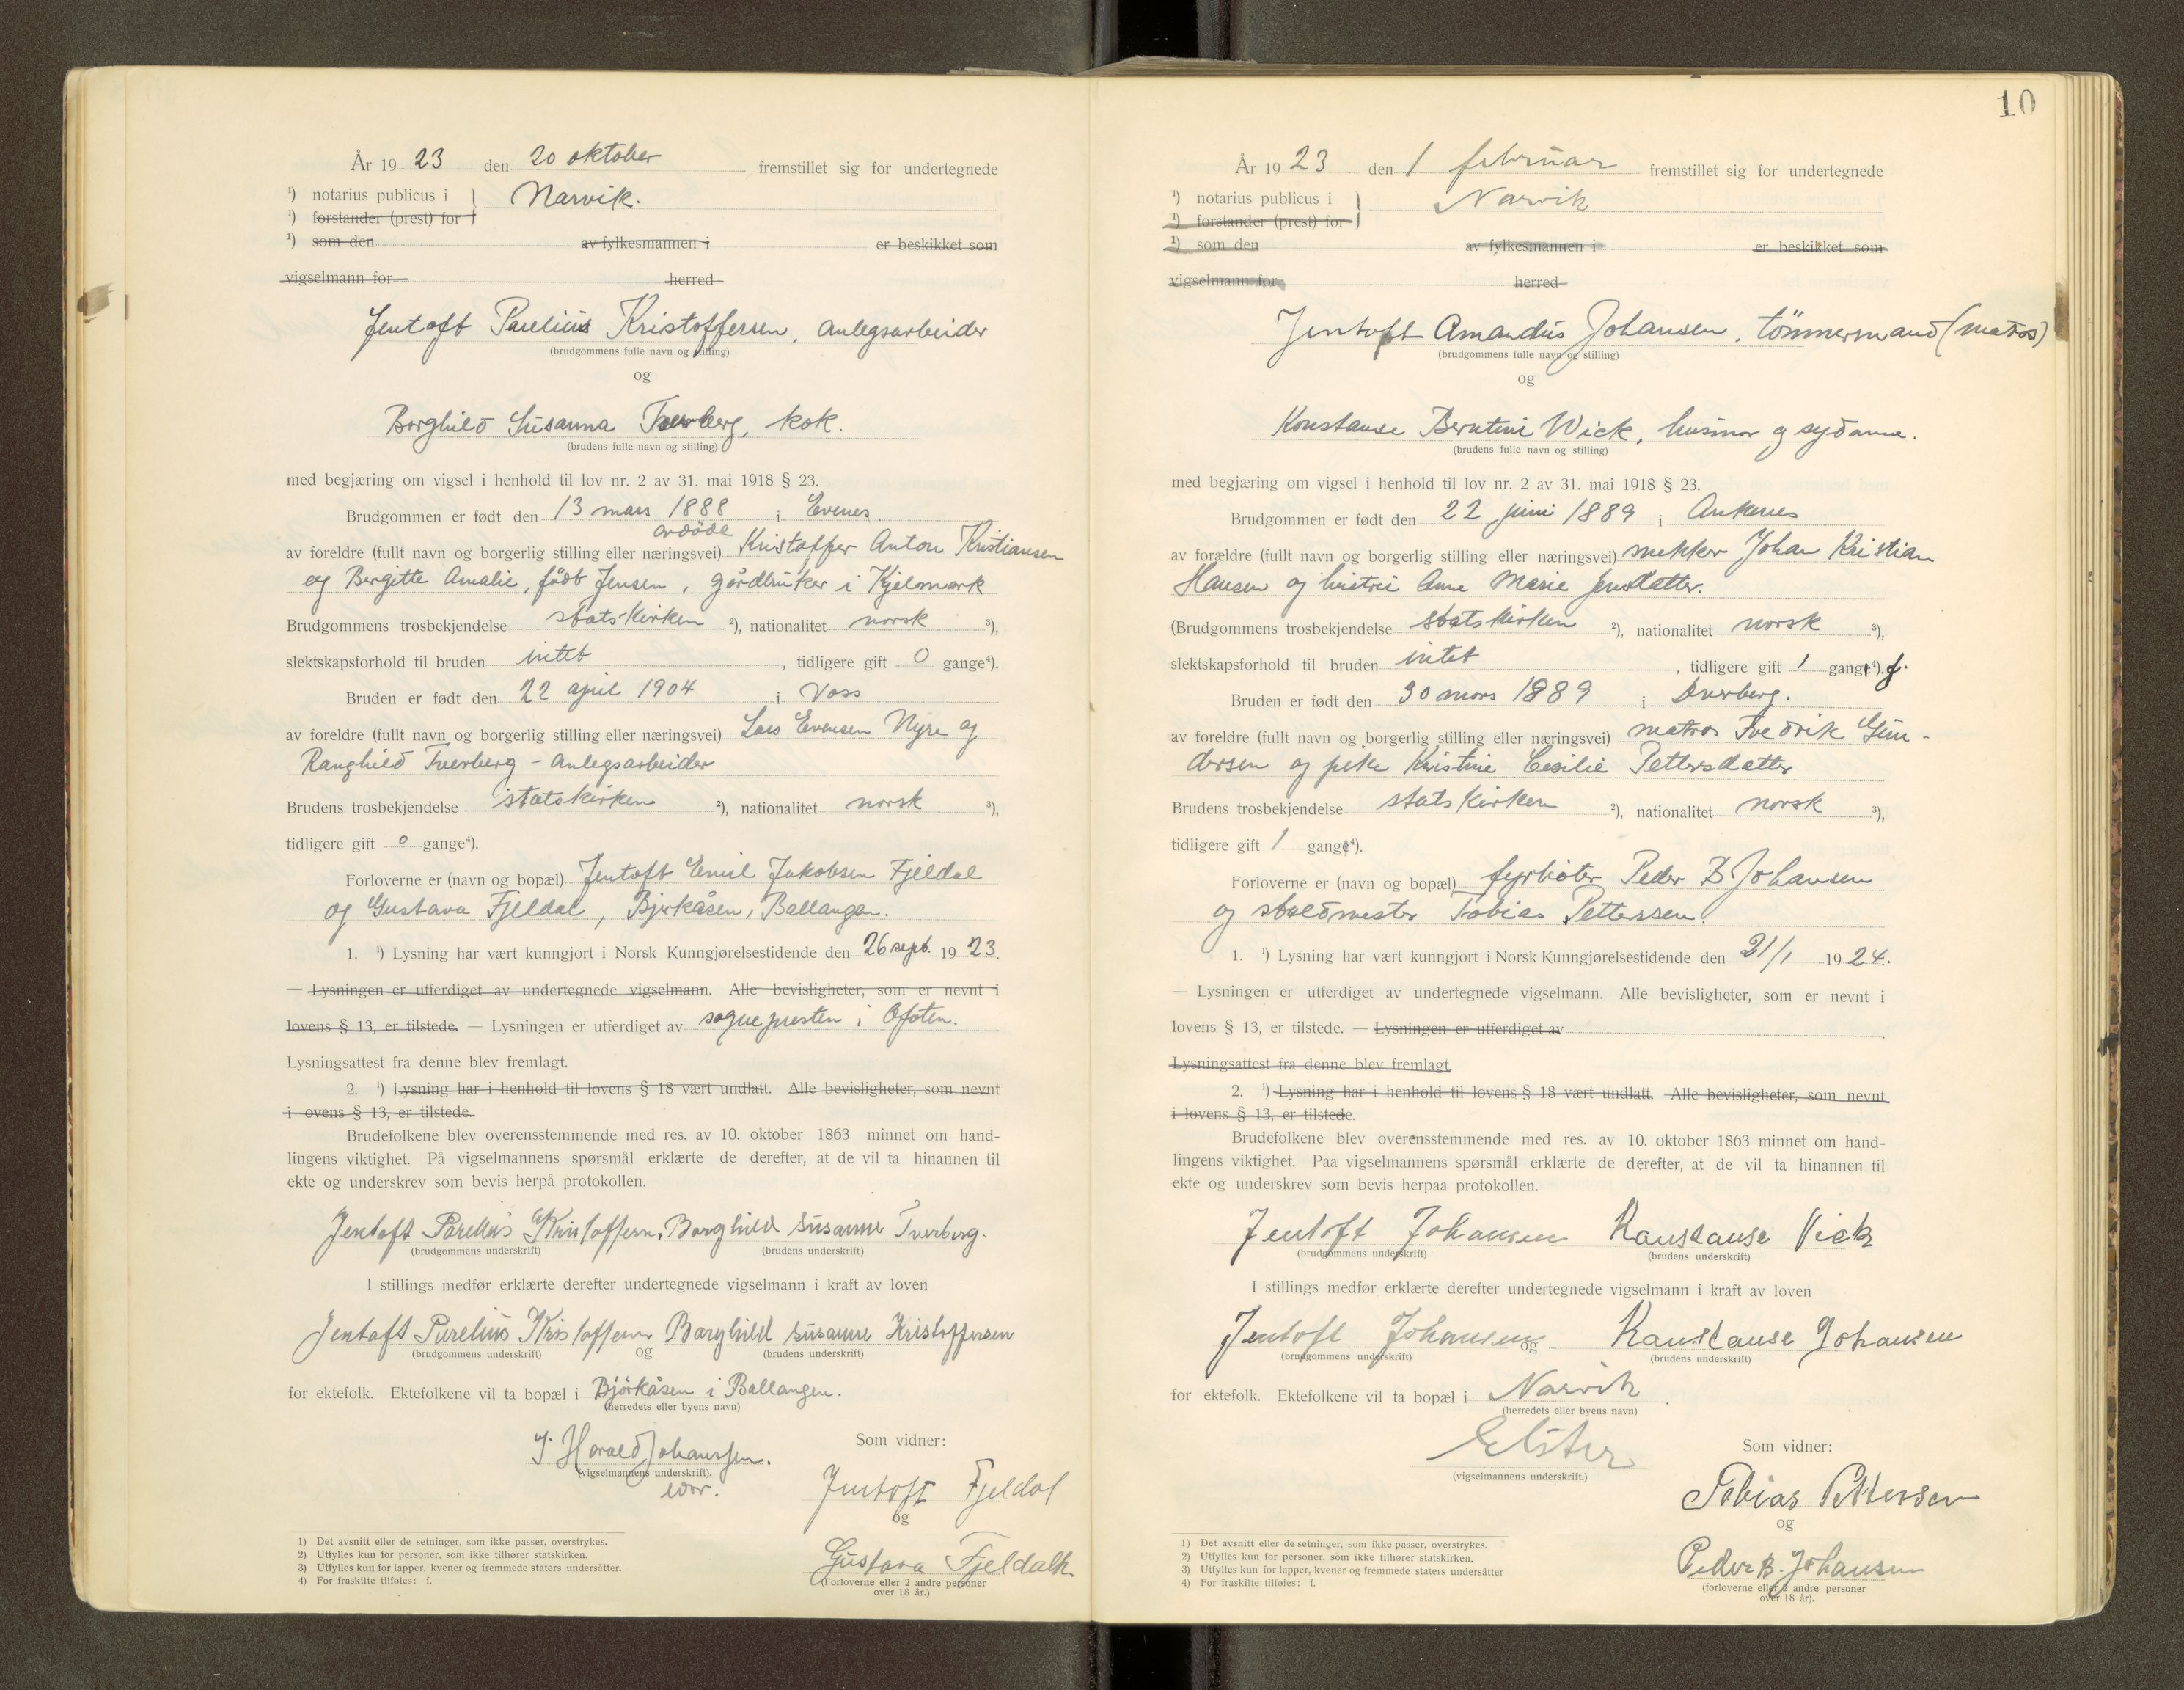 År 1923 den 20 oktober fremstillet sig for undertegnede
¹) notarius publicus i } Narvik.
¹) forstander (prest) for
¹) som den av fylkesmannen i er beskikket som
vigselmann for herred
Jentoft Paulius Kristoffersen, anlegsarbeider
(brudgommens fulle navn og stilling)
og
Borghild Susanna Tverberg, kok.
(brudens fulle navn og stilling)
med begjæring om vigsel i henhold til lov nr. 2 av 31. mai 1918 § 23.
Brudgommen er født den 13 mars 1888 i Evenes
avdöde
av foreldre (fullt navn og borgerlig stilling eller næringsvei) Kristoffer Anton Kristiansen
og Bergitte Amalie, född Jensen, gårdbruker i Kjelmark
Brudgommens trosbekjendelse statskirken ²), nationalitet norsk ³),
slektskapsforhold til bruden intet, tidligere gift 0 gange⁴).
Bruden er født den 22 april 1904 i Voss
av foreldre (fullt navn og borgerlig stilling eller næringsvei) Lars Evensen Nyre og
Ranghild Tverberg - anlegsarbeider
Brudens trosbekjendelse statskirken ²), nationalitet norsk ³),
tidligere gift 0 gange⁴).
Forloverne er (navn og bopæl) Jentoft Emil Jakobsen Fjeldal
og Gustava Fjeldal, Bjørkåsen, Ballangen.
1. ¹) Lysning har vært kunngjort i Norsk Kunngjørelsestidende den 26 sept. 1923.
— Lysningen er utferdiget av undertegnede vigselmann. Alle bevisligheter, som er nevnt i
lovens § 13, er tilstede. — Lysningen er utferdiget av sognepresten i Ofoten.
Lysningsattest fra denne blev fremlagt.
2. ¹) Lysning har i henhold til lovens § 18 vært undlatt. Alle bevisligheter, som nevnt
i ovens § 13, er tilstede.
Brudefolkene blev overensstemmende med res. av 10. oktober 1863 minnet om hand-
lingens viktighet. På vigselmannens spørsmål erklærte de derefter, at de vil ta hinannen til
ekte og underskrev som bevis herpå protokollen.
Jentoft Parelius Kristoffersen. Borghild Susanne Tverberg.
(brudgommens underskrift) (brudens underskrift)
I stillings medfør erklærte derefter undertegnede vigselmann i kraft av loven
Jentoft Parelius Kristoffersen og Borghild Susanne Kristoffersen
(brudgommens underskrift) (brudens underskrift)
for ektefolk. Ektefolkene vil ta bopæl i Björkåsen i Ballangen.
(herredets eller byens navn)
J. Harald Johanssen.
(vigselmannens underskrift).
Som vidner:
Jentoft Fjeldal
og
Gustava Fjeldahl
(Forloverne eller 2 andre personer
over 18 år.)
1) Det avsnitt eller de setninger, som ikke passer, overstrykes.
2) Utfylles kun for personer, som ikke tilhører statskirken.
3) Utfylles kun for lapper, kvener og fremmede staters undersåtter.
4) For fraskilte tilføies: f.
10
År 1923 den 1 februar fremstillet sig for undertegnede
¹) notarius publicus i } Narvik
¹) forstander (prest) for
¹) som den av fylkesmannen i er beskikket som
vigselmann for herred
Jentoft Amandus Johansen, tömmermand (matros)
(brudgommens fulle navn og stilling)
og
Konstanse Berntine Wick, husmor og sydame.
(brudens fulle navn og stilling)
med begjæring om vigsel i henhold til lov nr. 2 av 31. mai 1918 § 23.
Brudgommen er født den 22 juni 1889 i Ankenes
av forældre (fullt navn og borgerlig stilling eller næringsvei) snekker Johan Kristian
Hansen og hustru Anne Marie Jensdatter.
(Brudgommens trosbekjendelse statskirken ²), nationalitet norsk ³),
slektskapsforhold til bruden intet, tidligere gift 1 gang⁴). f.
Bruden er født den 30 mars 1889 i Dverberg.
av foreldre (fullt navn og borgerlig stilling eller næringsvei) matros Fredrik Gun-
dersen og pike Kristine Cecilie Pettersdatter
Brudens trosbekjendelse statskirken ²), nationalitet norsk ³),
tidligere gift 1 gang⁴).
Forloverne er (navn og bopæl) fyrböter Peder B Johansen
og staldmester Tobias Pettersen.
1. ¹) Lysning har vært kunngjort i Norsk Kunngjørelsestidende den 21/1 1924.
— Lysningen er utferdiget av undertegnede vigselmann. Alle bevisligheter, som er nevnt i
lovens § 13, er tilstede. — Lysningen er utferdiget av
Lysningsattest fra denne blev fremlagt
2. ¹) Lysning har i henhold til lovens § 18 vært undlatt. Alle bevisligheter, som nevnt
i lovens § 13, er tilstede.
Brudefolkene blev overensstemmende med res. av 10. oktober 1863 minnet om hand-
lingens viktighet. Paa vigselmannens spørsmål erklærte de derefter, at de vil ta hinannen til
ekte og underskrev som bevis herpaa protokollen.
Jentoft Johansen Konstanse Vick
(brudgommens underskrift) (brudens underskrift)
I stillings medfør erklærte derefter undertegnede vigselmann i kraft av loven
Jentoft Johansen og Konstanse Johansen
(brudgommens underskrift) (brudens underskrift)
for ektefolk. Ektefolkene vil ta bopæl i Narvik.
(herredets eller byens navn)
Elster
(vigselmannens underskrift.)
Som vidner:
Tobias Pettersen
og
Peder B. Johansen
(forloverne eller 2 andre personer
over 18 år).
1) Det avsnitt eller de setninger, som ikke passer, overstrykes.
2) Utfylles kun for personer, som ikke tilhører statskirken.
3) Utfylles kun for lapper, kvener og fremmede staters undersåtter
4) For fraskilte tilføies: f.